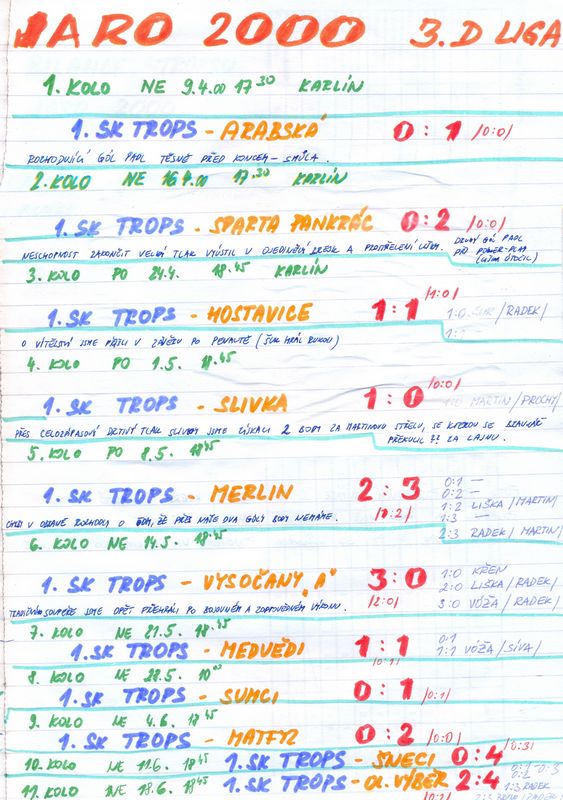 JARO 2000 3. D LIGA
1. KOLO NE 9.4.00 17 30 KARLÍN
1. SK TROPS - ARABSKÁ 0:1 /0:0/
ROZHODUJÍCÍ GÓL PADL TĚSNĚ PŘED KONCEM - SMŮLA.
2. KOLO NE 16.4.00 17.30 KARLÍN
1. SK TROPS - SPARTA PANKRÁC 0:2 /0:0/
NESCHOPNOST ZAKONČIT VELKÝ TLAK VYÚSTIL V OJEDINĚLÝ BREJK A PROSTŘELENÍ LUKIM. DRUHÝ GÓL PADL
PŘI POWER-PLAY
3. KOLO PO 24.4. 18.45 KARLÍN
1. SK TROPS - HOSTAVICE 1:1 /1:0/
1:0 /RADEK/
1:1 -
O VÍTĚZSTVÍ JSME PŘIŠLI V ZÁVĚRU PO PENALTĚ (ŠUK HRÁL RUKOU)
4. KOLO PO 1.5. 18.45
1. SK TROPS - SLIVKA 1:0 /0:0/
1:0 MARTIN /PROCHY/
PŘES CELOZÁPASOVÝ DRTIVÝ TLAK SLIVKY JSME ZÍSKALI 2 BODY ZA MARTINOVU STŘELU, SE KTEROU SE BRANKÁŘ
PŘEKULIL ZA LAJNU.
5. KOLO PO 8.5. 18 45
1. SK TROPS - MERLIN 2:3 /0:2/
0:1 -
0:2 -
1:2 LIŠKA /MARTIN/
1:3 -
2:3 RADEK /MARTIN/
CHYBY V OBRANĚ ROZHODLY O TOM, ŽE PŘES NAŠE DVA GÓLY BODY NEMÁME.
6. KOLO NE 14.5. 18.45
1. SK TROPS - VYSOČANY "A" 3:0 /2:0/
1:0 KŘEN
2:0 LIŠKA /RADEK/
3:0 VÓŽA /RADEK/
TRADIČNÍ SOUPEŘE JSME OPĚT PŘEHRÁLI PO BOJOVNÉM A ZODPOVĚDNÉM VÝKONU.
7. KOLO NE 21.5. 18.45
1. SK TROPS - MEDVĚDI 1:1 /0:1/
0:1
1:1 VÓŽA /SÍVA/
8. KOLO NE 28.5. 10 00
1. SK TROPS - SUMCI 0:1 /0:1/
9. KOLO NE 4.6. 18 45
1. SK TROPS - MATFYZ 0:2 /0:0/
10. KOLO NE 11.6. 18 45 1. SK TROPS - ŠNECI 0:4 /0:3/
11. KOLO NE 18.6. 18 45 1. SK TROPS - OL. VÝBĚR 2:4
1:3 RADEK